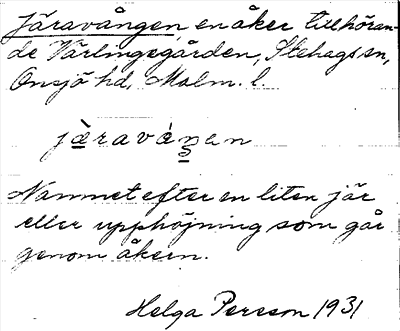 Järavången, en åker tillhöran-
de Värlingegården, Stehags sn,
Onsjö hd, Malm. l.
jä̀raváŋan
Namnet efter en liten jär
eller upphöjning som går
genom åkern.
Helga Persson 1931